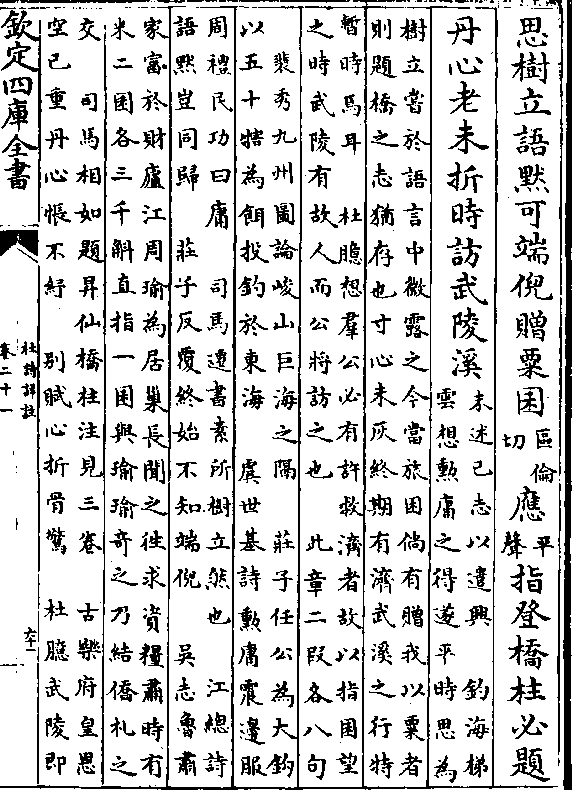 思樹立語黙可端倪贈粟囷區倫切應平聲指登橋柱必題
丹心老未折時訪武陵溪
末述已志以遣興　釣海梯
雲想勲庸之得遂平時思為
樹立嘗於語言中微露之今當旅困倘有贈我以粟者
則題橋之志猶存也寸心未灰終期有濟武溪之行特
暫時焉耳　杜臆想羣公必有許救濟者故以指囷望
之時武陵有故人而公將訪之也　此章二段各八句
裴秀九州圖論峻山巨海之隔　莊子任公為大鈎
以五十犗為餌投釣於東海　虞世基詩勲庸震邊服
周禮民功曰庸　司馬遷書素所樹立然也　江總詩
語黙豈同歸　莊子反覆終始不知端倪　吳志魯肅
家富於財廬江周瑜為居巢長聞之往求資糧肅時有
米二囷各三千斛直指一囷與瑜瑜奇之乃結僑札之
交　司馬相如題昇仙橋柱注見三卷　古樂府皇恩
空已重丹心悵不紓　别賦心折骨驚　杜臆武陵即
欽定四庫全書
杜詩詳註
卷二十一